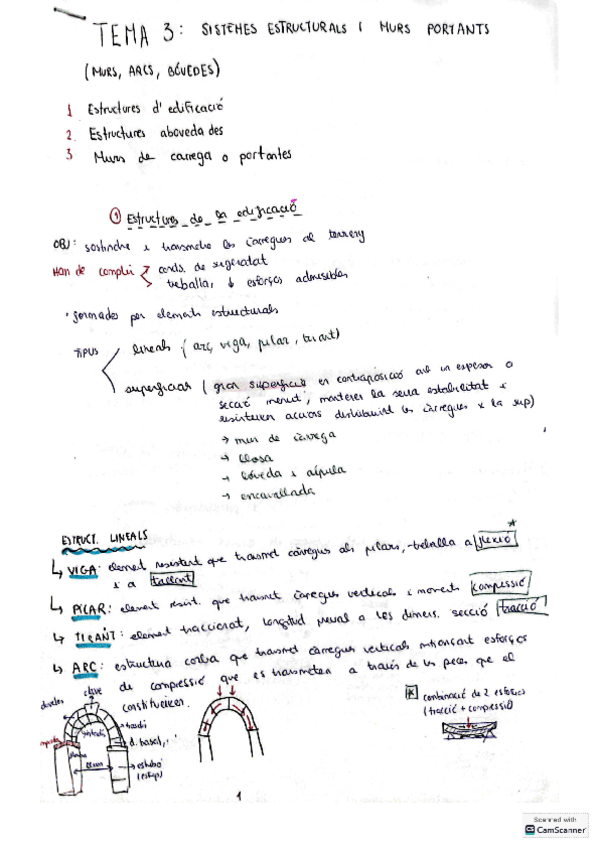 TEMA 3: SISTEMES ESTRUCTURALS I MURS PORTANTS
(MURS, ARCS, BÓVEDES)
1 Estructures d'edificació
2. Estructures abovedades
3 Murs de carrega o portantes
① Estructures de la edificació
OBJ: sostindre i transmetre les càrregues al terreny
Han de complir conds. de seguretat
treballar ↓ esforços admisibles
· formades per elements estructurals
TIPUS
lineals (arc, viga, pilar, tirant)
superficiar (gran superficie en contraposició amb un espesor o
secció menut, mantenen la seua estabilitat x
resisteixen accions distribuint les càrregues x la sup)
→ mur de càrrega
→ llosa
→ bóveda i cúpula
→ encavallada
ESTRUCT. LINEALS
↳ VIGA: element resistent que transmet càrregues als pilars, treballa a flexió *
i a tallant
↳ PILAR: element resist. que transmet càrregues verticals i moments compressió
↳ TIRANT: element traccionat, longitud a les dimens. secció tracció
↳ ARC: estructura corba que transmet càrregues verticals mitjançant esforços
de compressió que es transmeten a través de les peces que el
constitueixen.
* combinació de 2 esforços
(tracció + compressió)
dovelles
clave
trasdós
intradós
estribo
(estrep)
1
Scanned with
CS CamScanner